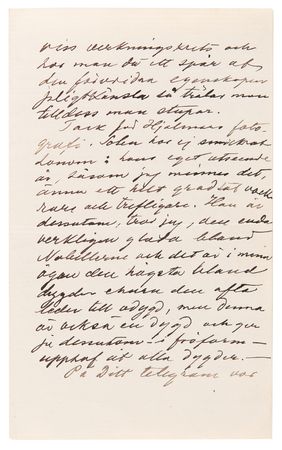 viss verkningskrets och
har man då ett spår af
den förvridna egenskapen
pligtkänsla så trälar man
tilldess man stupar.
Tack för Hjalmars foto-
grafi. Solen har ej smickrat
honom: hans eget utseende
är, såsom jag minnes det,
ännu ett helt grad vack
rare och trefligare. Han är
dessutom, tror jag, den enda
verkligen glada bland
Nobellerne och det är i mina
ögon den högsta bland
dygder churu den ofta
leder till odygd, men denna
är också en dygd och ger
ju dessutom i fröform
upphof åt alla dygder. —
På Ditt telegram var